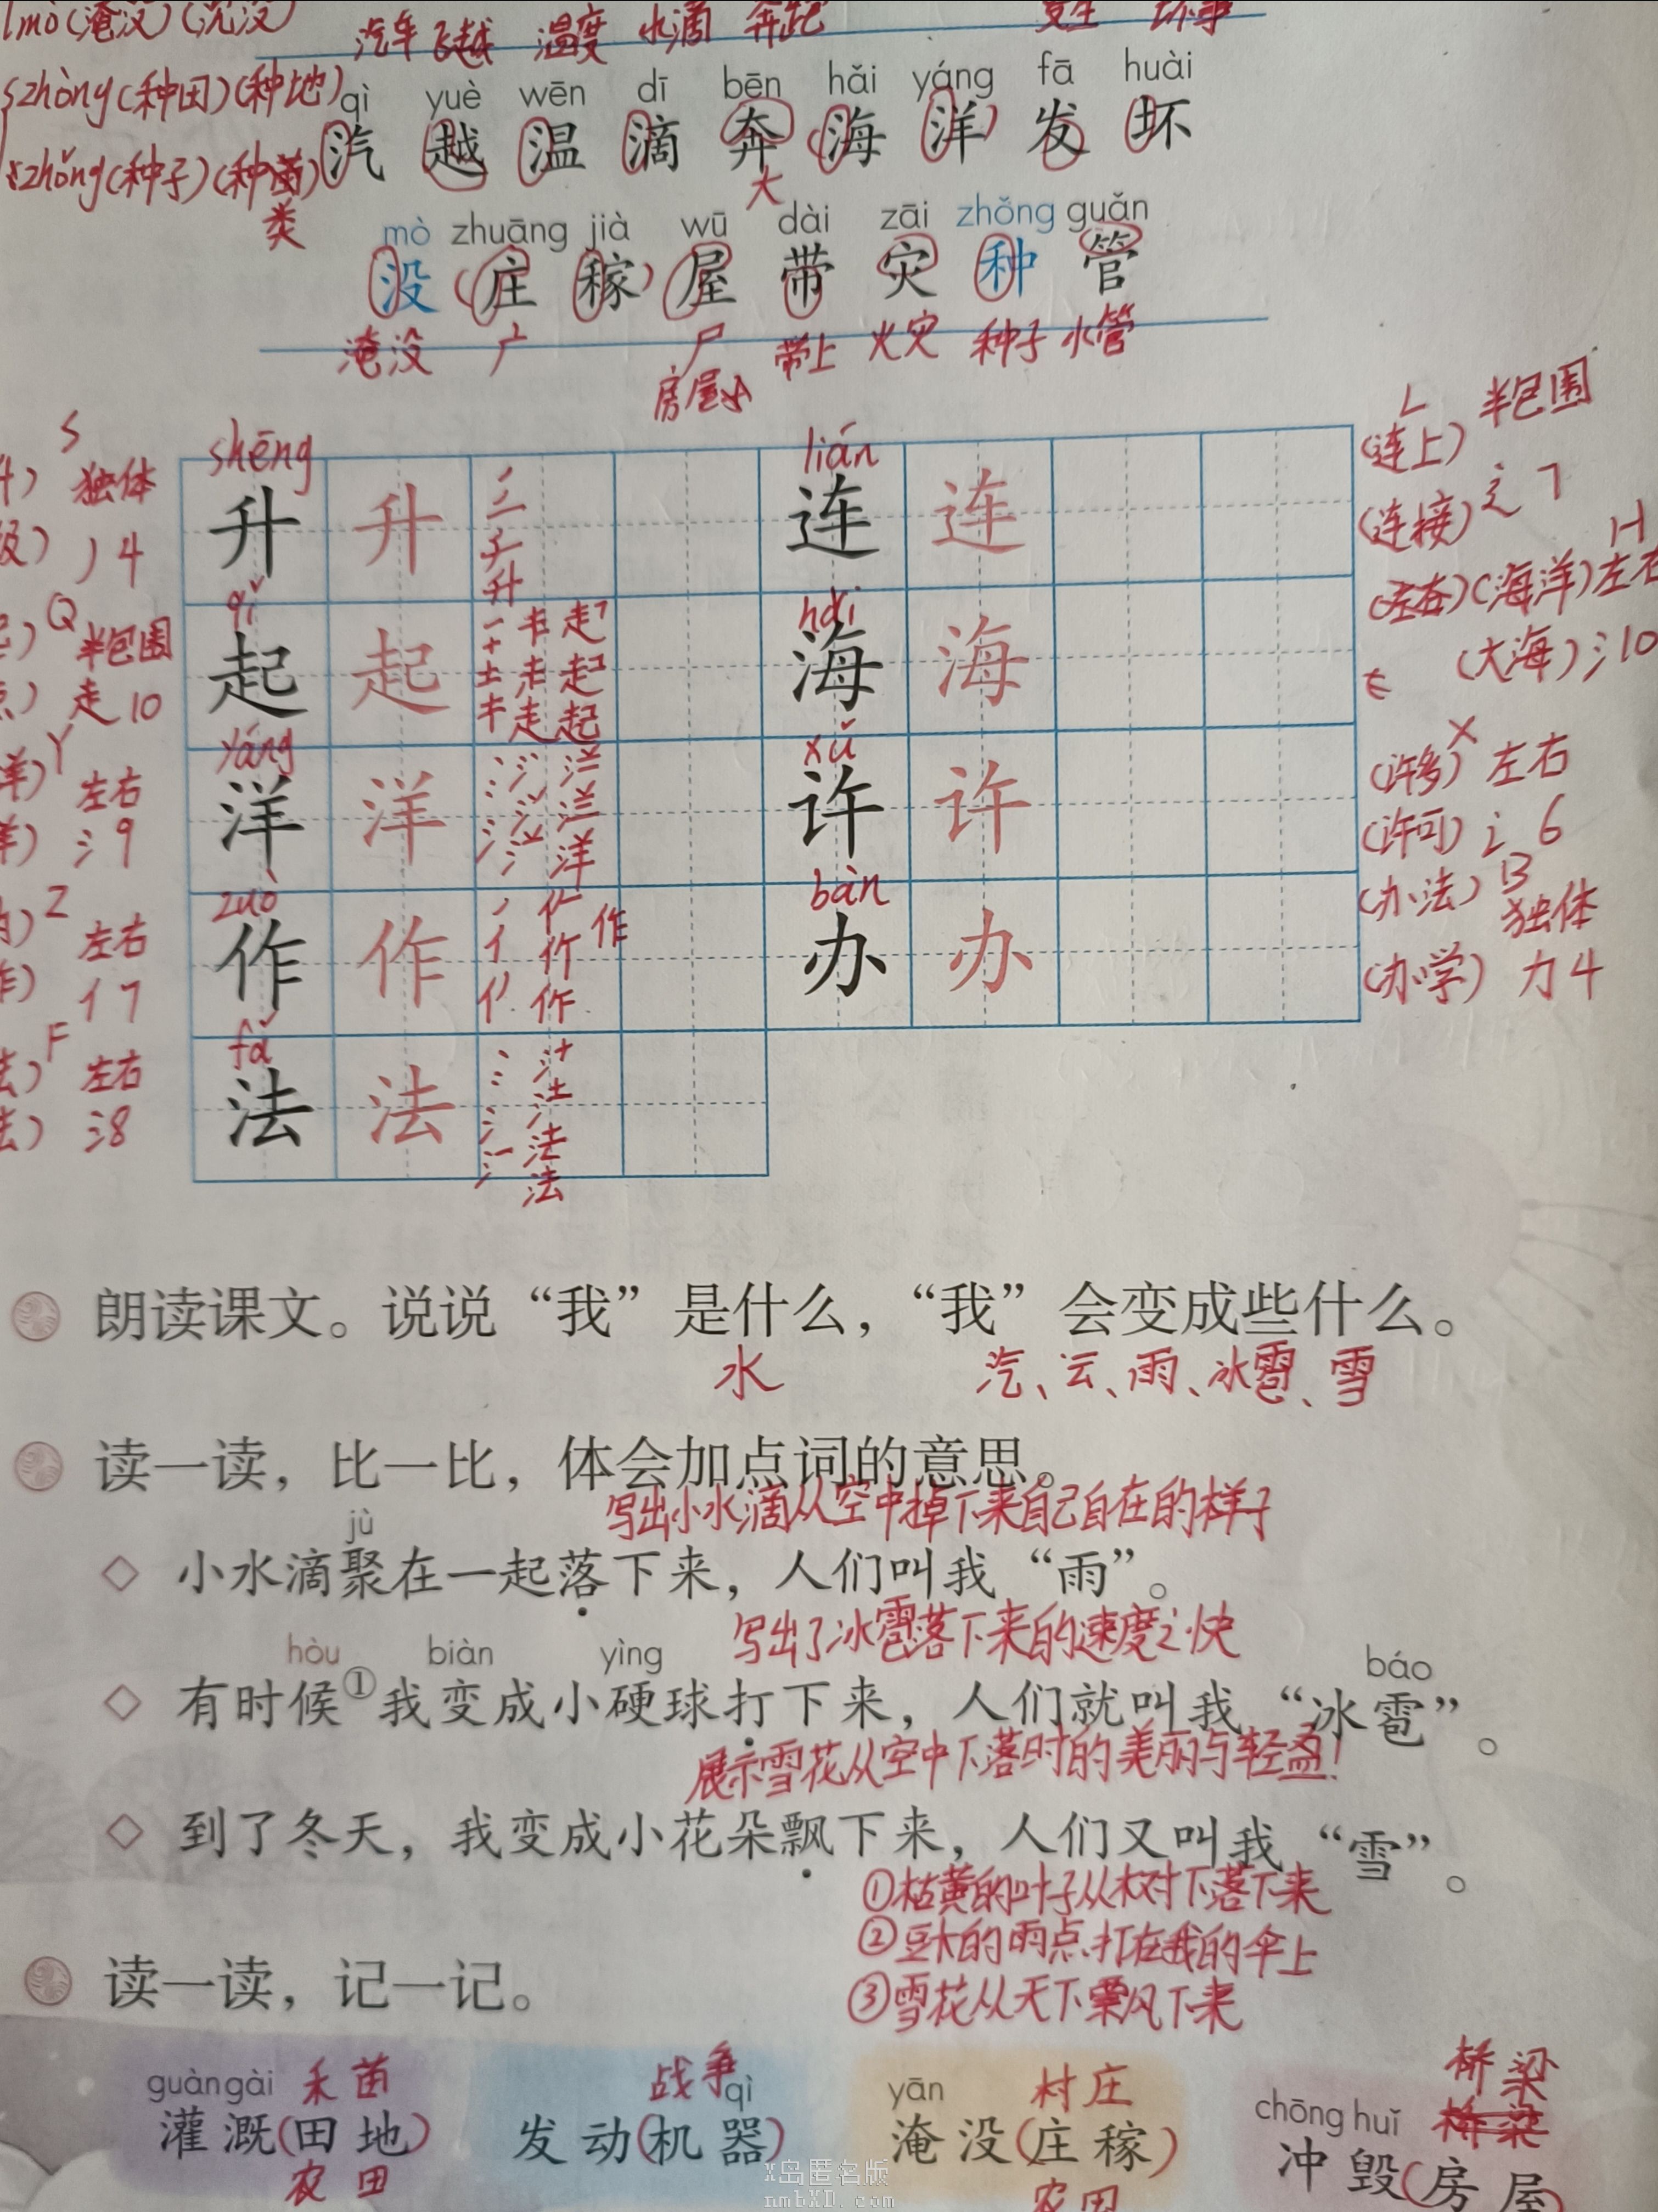 mò(淹没)(沉没)
汽车 飞越 温度 水滴 奔跑
zhòng(种田)(种地)
qì yuè wēn dī bēn hǎi yáng fā huài
汽 越 温 滴 奔 海 洋 发 坏
zhǒng(种子)(种苗)
类
大
mò zhuāng jià wū dài zāi zhǒng guǎn
没(庄 稼)屋 带 灾 种 管
淹没 广 尸 带上 火灾 种子 水管
房屋
S 独体
丿 4
shēng
升 升
升
lián
连 连
L 半包围
(连上)
(连接) 辶 7
Q 半包围
走 10
qǐ
起 起
走 起
hǎi
海 海
H
(海洋)左右
(大海)氵10
Y 左右
氵9
yáng
洋 洋
洋
xǔ
许 许
X
(许多) 左右
(许可) 讠 6
Z 左右
亻7
zuò
作 作
作
bàn
办 办
B
(办法) 独体
(办学) 力 4
F 左右
氵8
fǎ
法 法
法
朗读课文。说说“我”是什么，“我”会变成些什么。
水 汽、云、雨、冰雹、雪
读一读，比一比，体会加点词的意思。
写出小水滴从空中掉下来自己自在的样子
jù
小水滴聚在一起落下来，人们叫我“雨”。
写出了冰雹落下来的速度之快
hòu biàn yìng báo
有时候①我变成小硬球打下来，人们就叫我“冰雹”。
展示雪花从空中下落时的美丽与轻盈！
到了冬天，我变成小花朵飘下来，人们又叫我“雪”。
①枯黄的叶子从树下落下来
②豆大的雨点打在我的伞上
③雪花从天下飘下来
读一读，记一记。
guàn gài 禾苗 战争 qì yān 村庄 chōng huǐ 桥梁
灌溉(田地) 发动(机器) 淹没(庄稼) 冲毁(房屋)
农田 农田
X岛匿名版
nmbXD.com